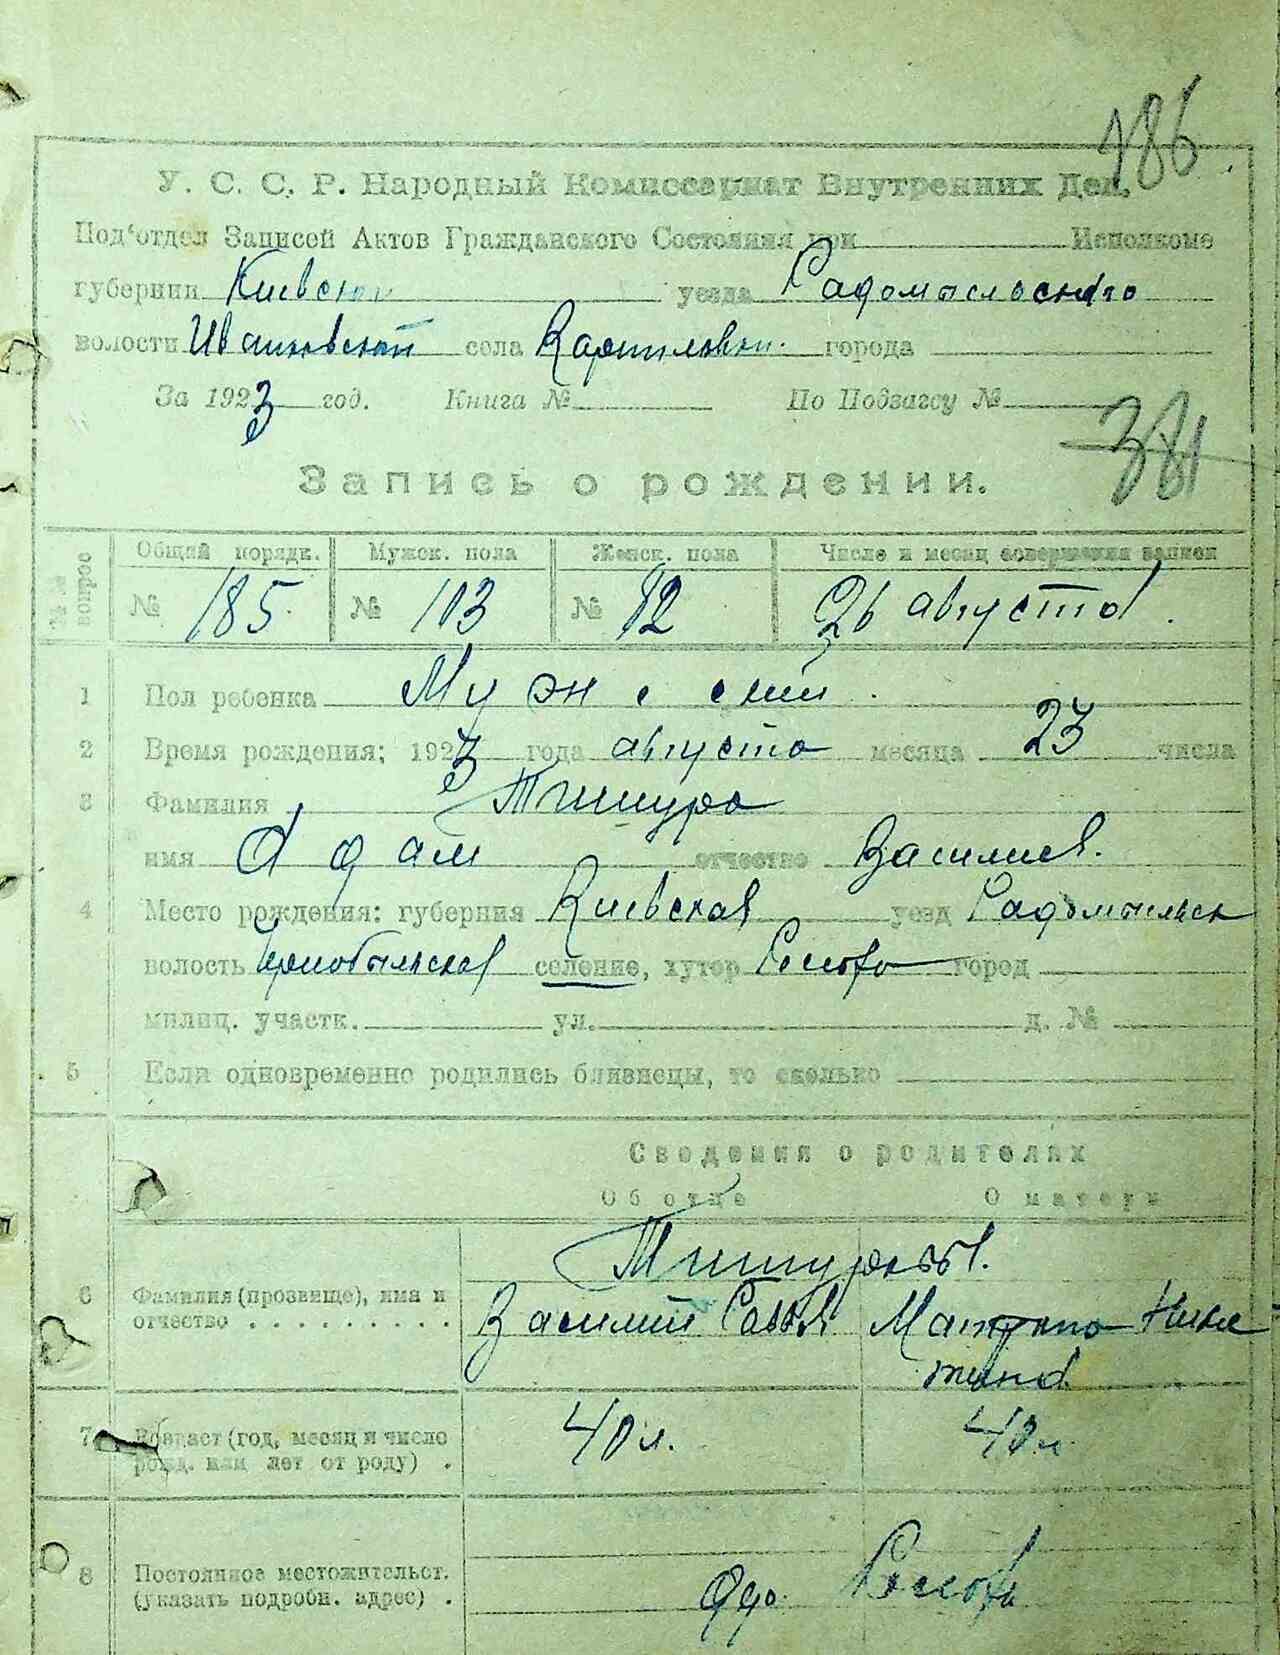 186
У. С. С. Р. Народный Комиссариат Внутренних Дел.
Под‘отдел Записей Актов Гражданского Состояния при Исполкоме
губернии Киевской уезда Радомысльского
волости Ивановской села Карпиловки. города
За 1923 год. Книга № По Подзагсу №
381
Запись о рождении.
№№ вопрос
Общий порядк. Мужск. пола Женск. пола Число и месяц совершения записи
№ 185. № 103 № 82 26 августа.
1 Пол ребенка Мужской.
2 Время рождения: 1923 года августа месяца 23 числа
3 Фамилия Тишура
имя Адам отчество Василиев.
4 Место рождения: губерния Киевская уезд Радомыльск
волость Чернобыльская селение, хутор город
милиц. участк. ул. д. №
5 Если одновременно родились близнецы, то сколько
Сведения о родителях
Об отце О матери
6 Фамилия (прозвище), имя и отчество
Василий Савв. Матрона
7 Возраст (год, месяц и число рожд. или лет от роду) .
40 л. 40 л.
8 Постоянное местожительст. (указать подробн. адрес) .